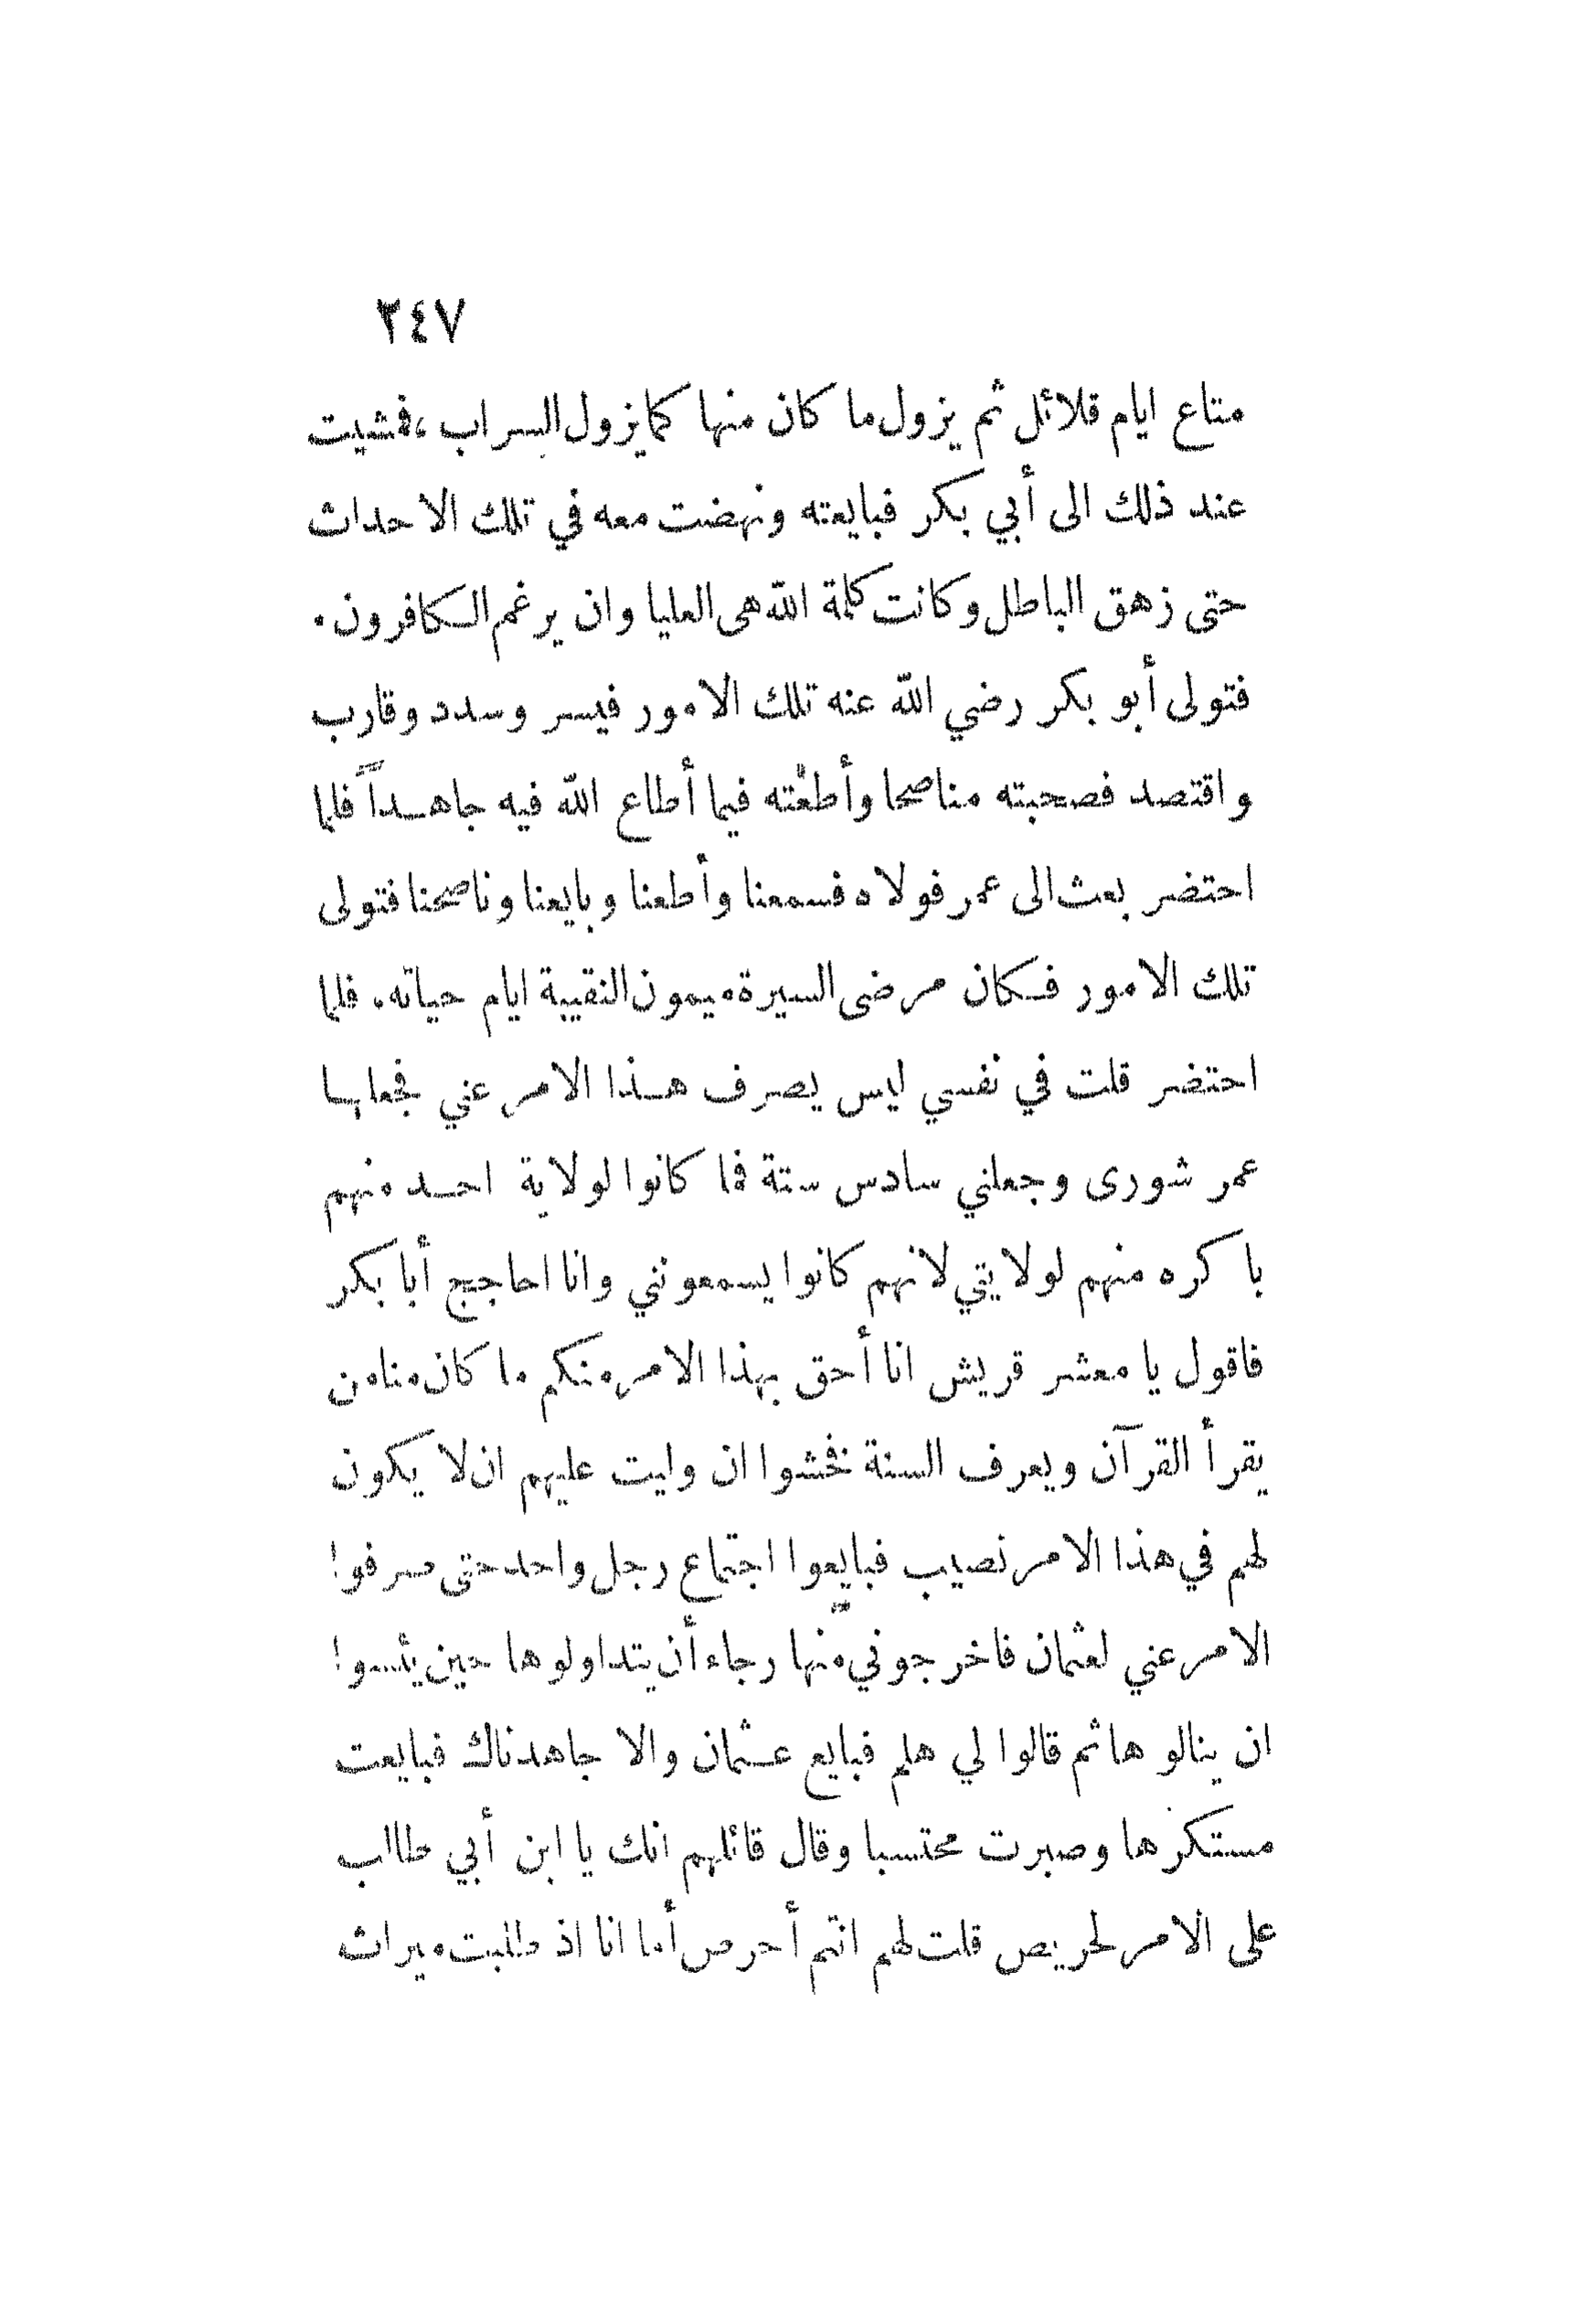 ٢٤٧
متاع ايام قلائل ثم يزول ما كان منها كما يزول السراب، فمشيت
عند ذلك الى أبي بكر فبايعته ونهضت معه في تلك الاحداث
حتى زهق الباطل وكانت كلمة الله هى العليا وان يرغم الكافرون.
فتولى أبو بكر رضي الله عنه تلك الامور فيسر وسدد وقارب
واقتصد فصحبته مناصحا وأطعته فيما أطاع الله فيه جاهداً فلما
احتضر بعث الى عمر فولاه فسمعنا وأطعنا وبايعنا وناصحنا فتولى
تلك الامور فكان مرضى السيرة ميمون النقيبة ايام حياته. فلما
احتضر قلت في نفسي ليس يصرف هذا الامر عني فجعلها
عمر شورى وجعلني سادس ستة فما كانوا لولاية احد منهم
باكره منهم لولايتي لانهم كانوا يسمعونني وانا احاجج أبا بكر
فاقول يا معشر قريش انا أحق بهذا الامر منكم ما كان منا من
يقرأ القرآن ويعرف السنة فخشوا ان وليت عليهم ان لا يكون
لهم في هذا الامر نصيب فبايعوا اجتماع رجل واحد حتى صرفوا
الامر عني لعثمان فاخرجوني منها رجاء أن يتداولوها حين يئسوا
ان ينالوها ثم قالوا لي هلم فبايع عثمان والا جاهدناك فبايعت
مستكرها وصبرت محتسبا وقال قائلهم انك يا ابن أبي طالب
على الامر لحريص قلت لهم انتم أحرص أما انا اذ طلبت ميراث